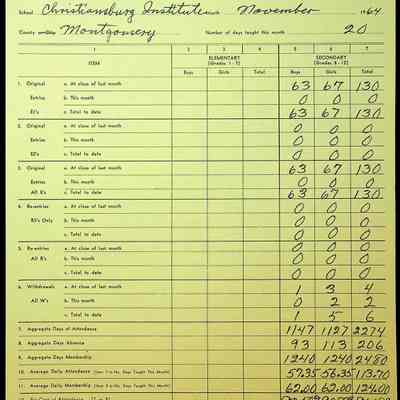 School Christiansburg Institute Month November 1964
County or City Montgomery Number of days taught this month 20
1 2 3 4 5 6 7
ITEM ELEMENTARY (Grades 1 - 7) SECONDARY (Grades 8 - 12)
Boys Girls Total Boys Girls Total
1. Original a. At close of last month 63 67 130
Entries b. This month 0 0 0
E1's c. Total to date 63 67 130
2. Original a. At close of last month 0 0 0
Entries b. This month 0 0 0
E2's c. Total to date 0 0 0
3. Original a. At close of last month 63 67 130
Entries b. This month 0 0 0
All E's c. Total to date 63 67 130
4. Re-entries a. At close of last month 0 0 0
b. This month 0 0 0
c. Total to date 0 0 0
5. Re-entries a. At close of last month 0 0 0
All R's b. This month 0 0 0
c. Total to date 0 0 0
6. Withdrawals a. At close of last month 1 3 4
All W's b. This month 0 2 2
c. Total to date 1 5 6
7. Aggregate Days of Attendance 1147 1127 2274
8. Aggregate Days Absence 93 113 206
9. Aggregate Days Membership 1240 1240 2480
10. Average Daily Attendance 57.35 56.35 113.70
11. Average Daily Membership 62.00 62.00 124.00